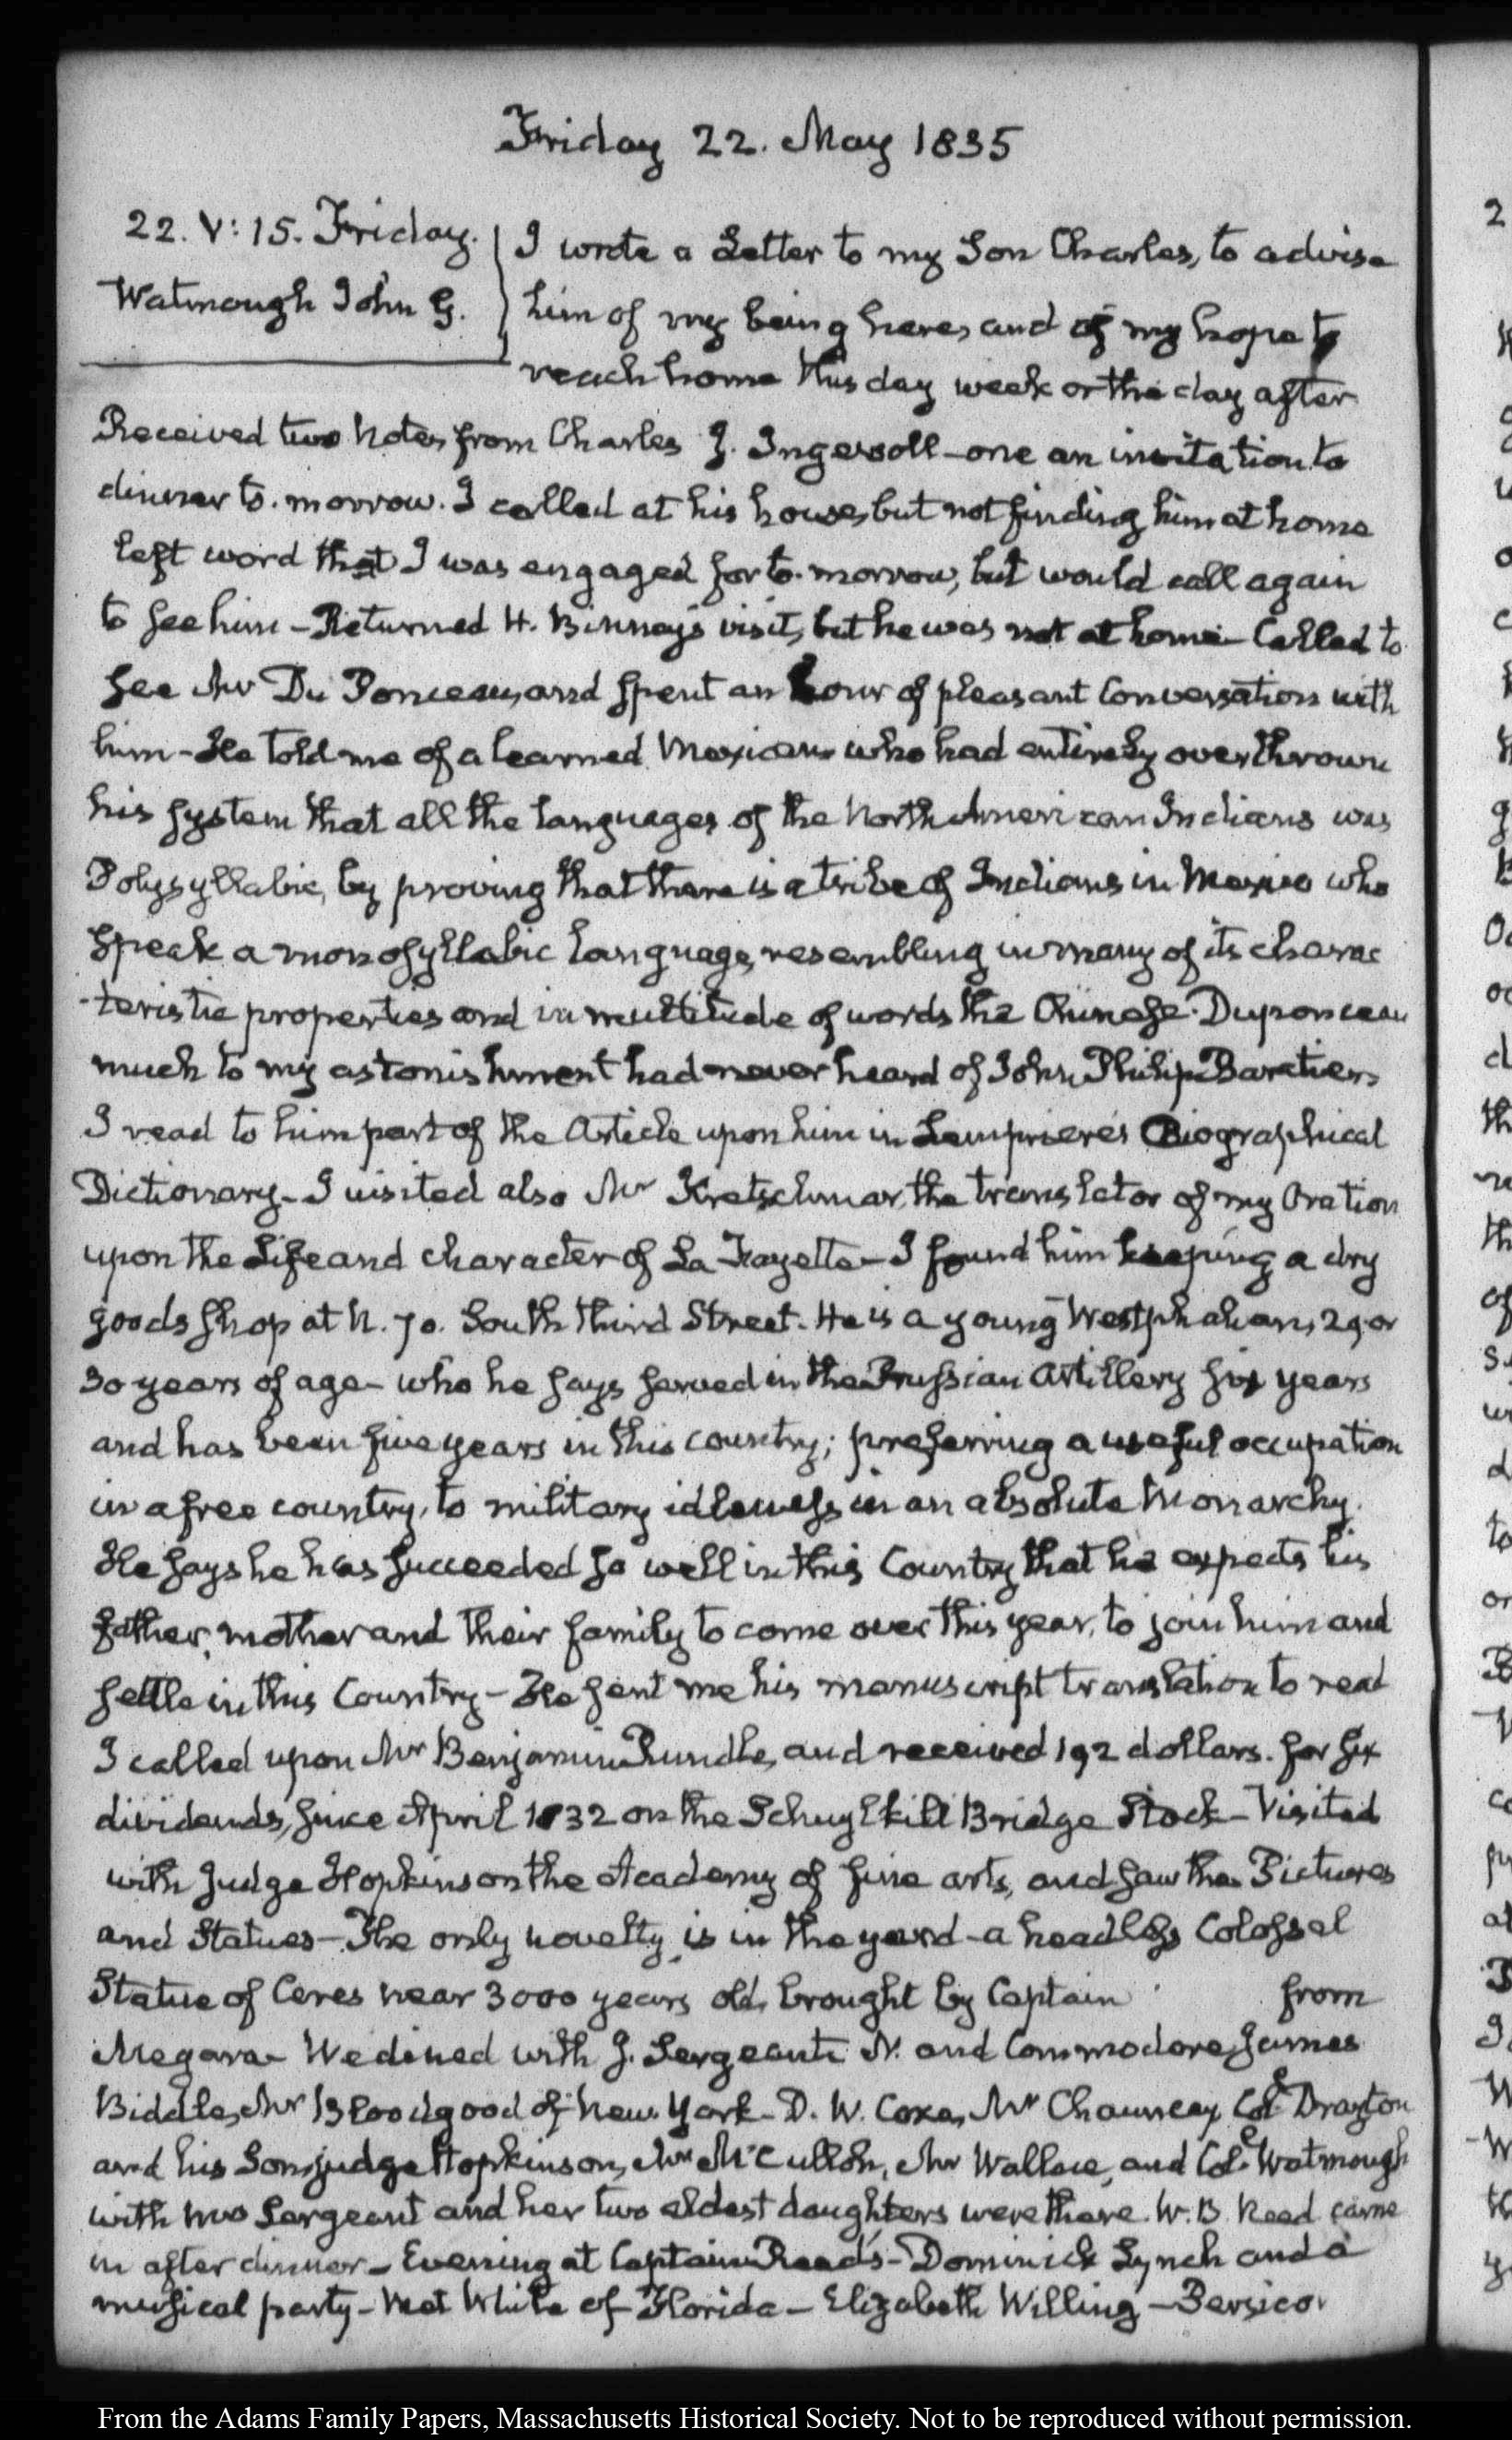 Friday 22. May 1835
22. V: 15. Friday.
Watmough John G.
I wrote a Letter to my Son Charles, to advise
him of my being here, and of my hope to
reach home this day week or the day after
Received two Notes from Charles J. Ingersoll - one an invitation to
dinner to-morrow. I called at his house, but not finding him at home
left word that I was engaged for to-morrow, but would call again
to see him - Returned H. Binney's visit, but he was not at home - Called to
see Mr Du Ponceau, and spent an hour of pleasant Conversation with
him - He told me of a learned Mexican who had entirely overthrown
his system that all the languages of the North American Indians was
Polysyllabic, by proving that there is a tribe of Indians in Mexico who
speak a monosyllabic language, resembling in many of its charac
-teristic properties and in multitude of words the Chinese. Duponceau
much to my astonishment had never heard of John Philip Baratier,
I read to him part of the Article upon him in Lempriere's Biographical
Dictionary - I visited also Mr Kretschmar, the translator of my Oration
upon the Life and character of La Fayette - I found him keeping a dry
goods shop at N. 70. South third Street. He is a young Westphalian, 29 or
30 years of age - who he says served in the Prussian Artillery six years
and has been five years in this country; preferring a useful occupation
in a free country, to military idleness in an absolute Monarchy.
He says he has succeeded so well in this Country that he expects his
father, mother and their family to come over this year, to join him and
settle in this Country - He sent me his manuscript translation to read
I called upon Mr Benjamin Rundle, and received 192 dollars. for six
dividends, since April 1832 on the Schuylkill Bridge Stock - Visited
with Judge Hopkinson the Academy of fine arts, and saw the Pictures
and Statues - The only novelty is in the yard - a headless Colossal
Statue of Ceres near 3000 years old, brought by Captain from
Megara - We dined with J. Sergeant. N. and Commodore James
Biddle, Mr Bloodgood of New York - D. W. Coxe, Mr Chauncey, Col. Drayton
and his Son, judge Hopkinson, Mr McCulloh, Mr Wallace, and Col. Watmough
with Mrs Sergeant and her two eldest daughters were there. W. B. Reed came
in after dinner - Evening at Captain Read's - Dominick Lynch and a
musical party - Met White of Florida - Elizabeth Willing - Persico.
From the Adams Family Papers, Massachusetts Historical Society. Not to be reproduced without permission.